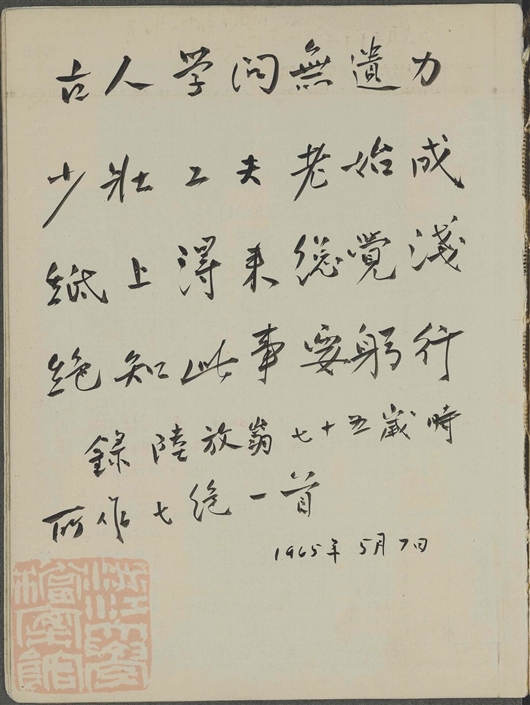 古人学问無遺力
少壯工夫老始成
紙上得来總覺淺
絕知此事要躬行
錄陸放翁七十五歲時
所作七絕一首
1965年5月7日
浙江大學
檔案館